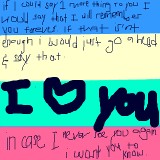 if I could say 1 last thing to you I
would say that I will remember
you forever if that isnt
enough i would just go ahead
& say that
I ♥ you
in case I never see you again
i want you to
know